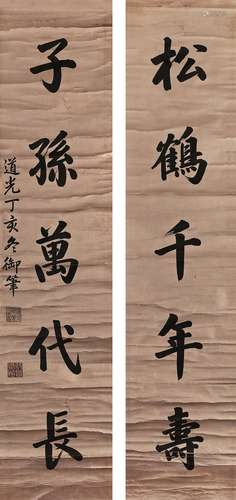 松鶴千年壽
子孫萬代長
道光丁亥冬御筆